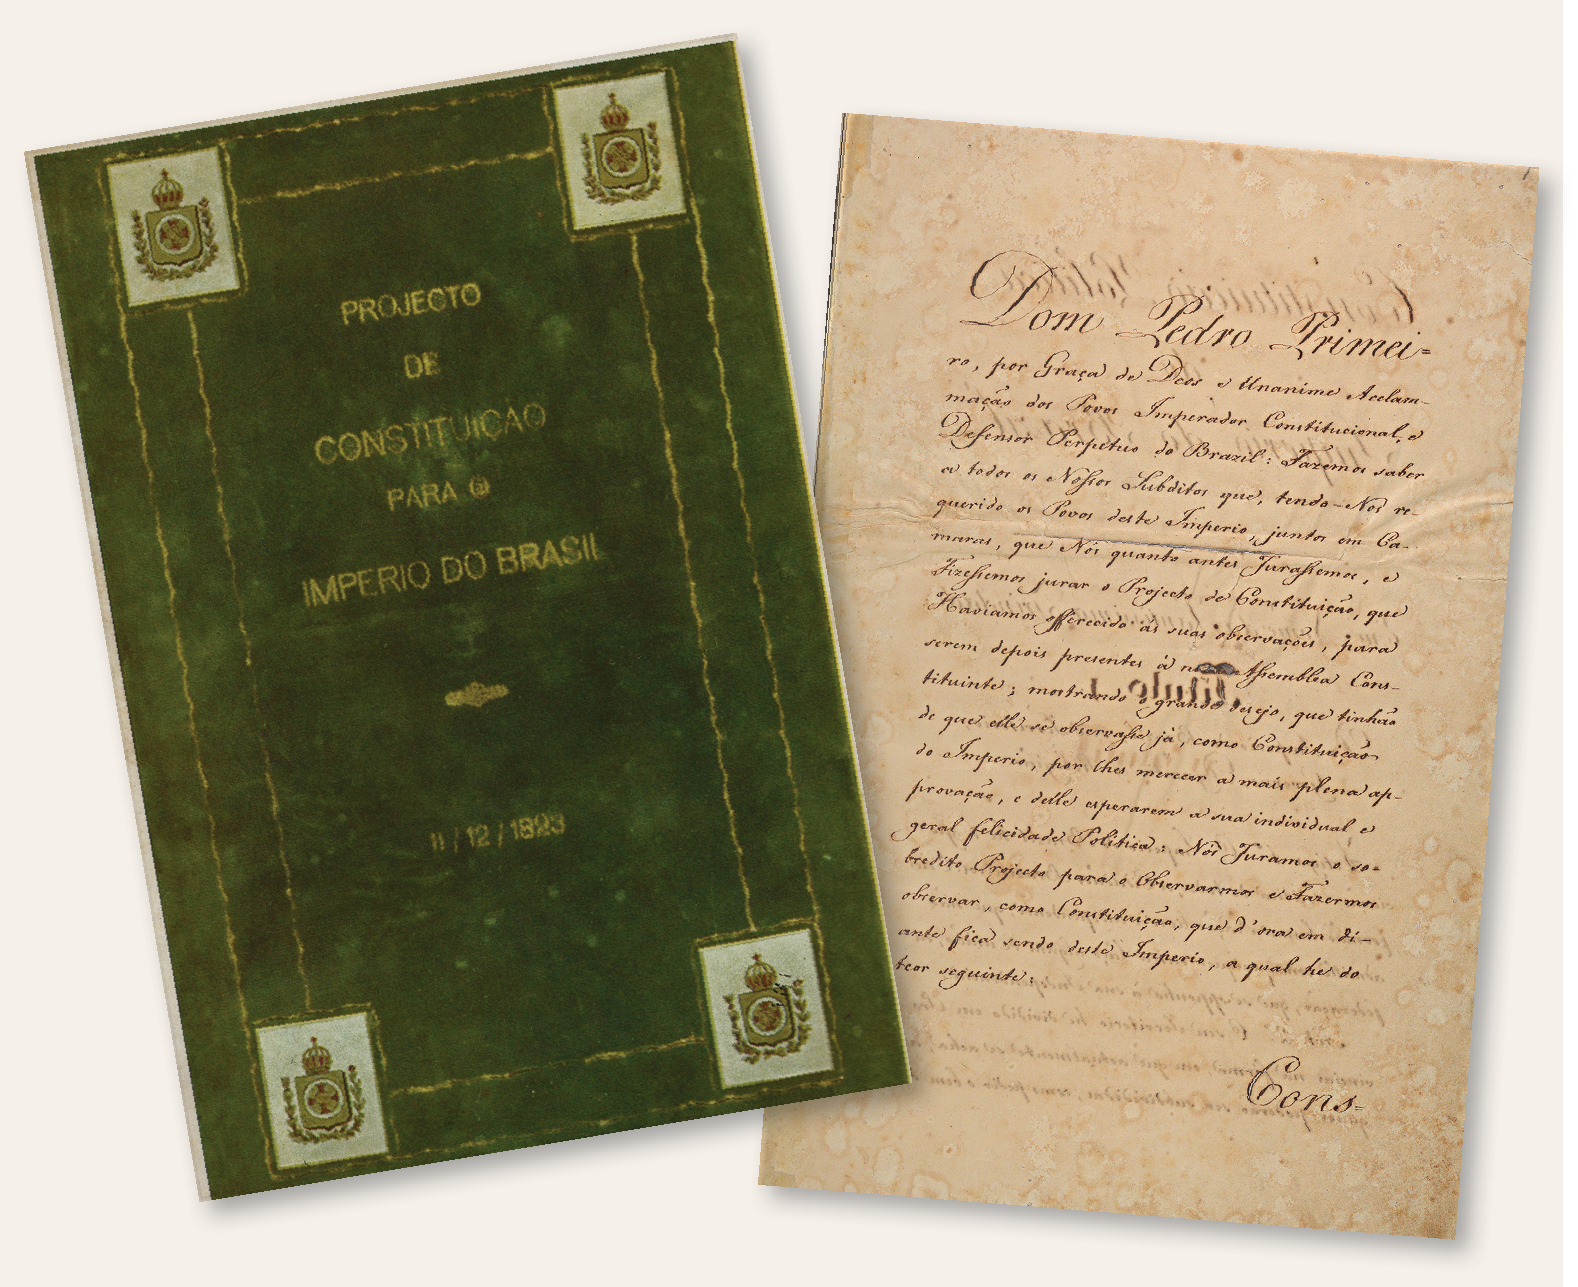 PROJECTO
DE
CONSTITUIÇÃO
PARA O
IMPERIO DO BRASIL
11/12/1823
Dom Pedro Primei=
ro, por Graça de Deos e Unanime Acclam-
mação dos Povos Imperador Constitucional, e
Defensor Perpetuo do Brazil: Fazemos saber
a todos os Nossos Subditos que, tendo-Nos re-
querido os Povos deste Imperio, juntos em Ca-
maras, que Nós quanto antes Jurassemos, e
Fizessemos jurar o Projecto de Constituição, que
Haviamos offerecido ás suas observações, para
serem depois presentes á nova Assemblea Cons-
tituinte; mostrando o grande desejo, que tinhão
de que elle se observasse já, como Constituição
do Imperio, por lhes merecer a mais plena ap-
provação, e delle esperarem a sua individual e
geral felicidade Politica: Nós Juramos o so-
bredito Projecto para o Observarmos e Fazermos
observar, como Constituição, que d'ora em di-
ante fica sendo deste Imperio, a qual he do
teor seguinte:
Cons=